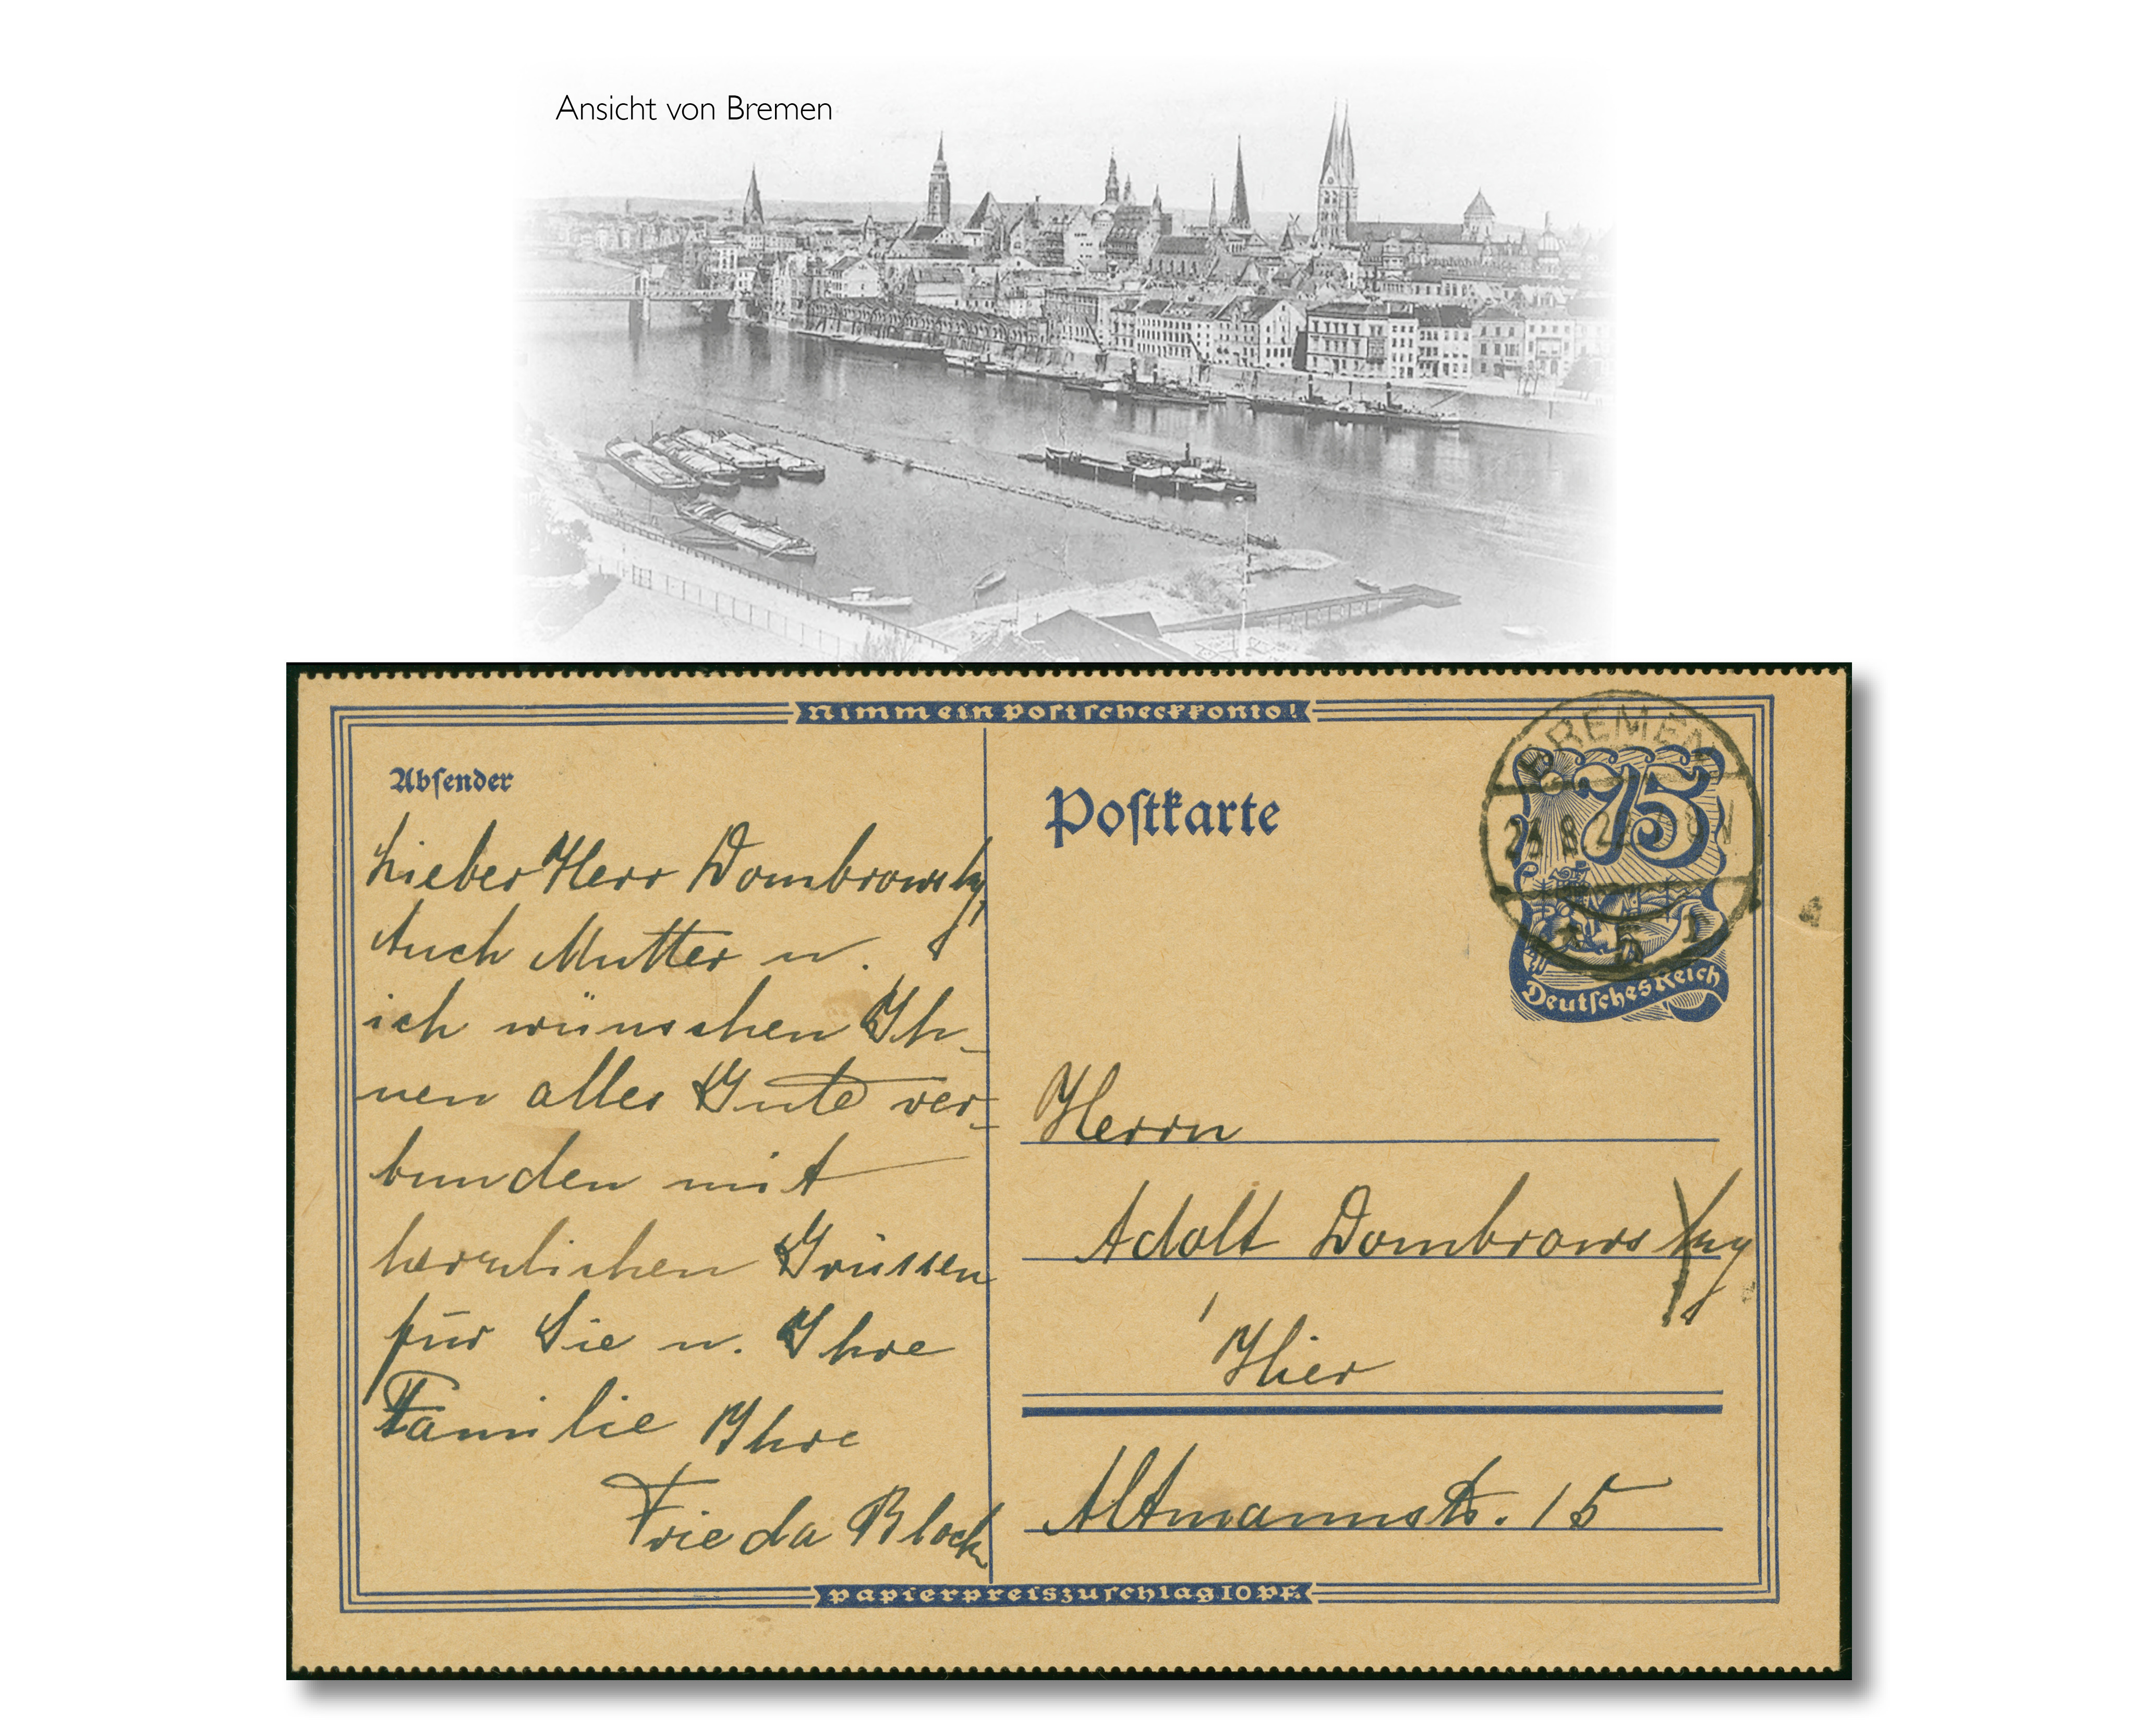 Ansicht von Bremen
Nimm ein Postscheckkonto!
Absender
Postkarte
BREMEN
75
5
Deutsches Reich
Lieber Herr Dombrowsky,
Auch Mutter u.
ich wünschen Ih-
nen alles Gute ver-
bunden mit
herzlichen Grüssen
für Sie u. Ihre
Familie Ihre
Frieda Block
Herrn
Adolf Dombrowsky
Hier
Altmannstr. 15
Papierpreiszuschlag 10 Pf.